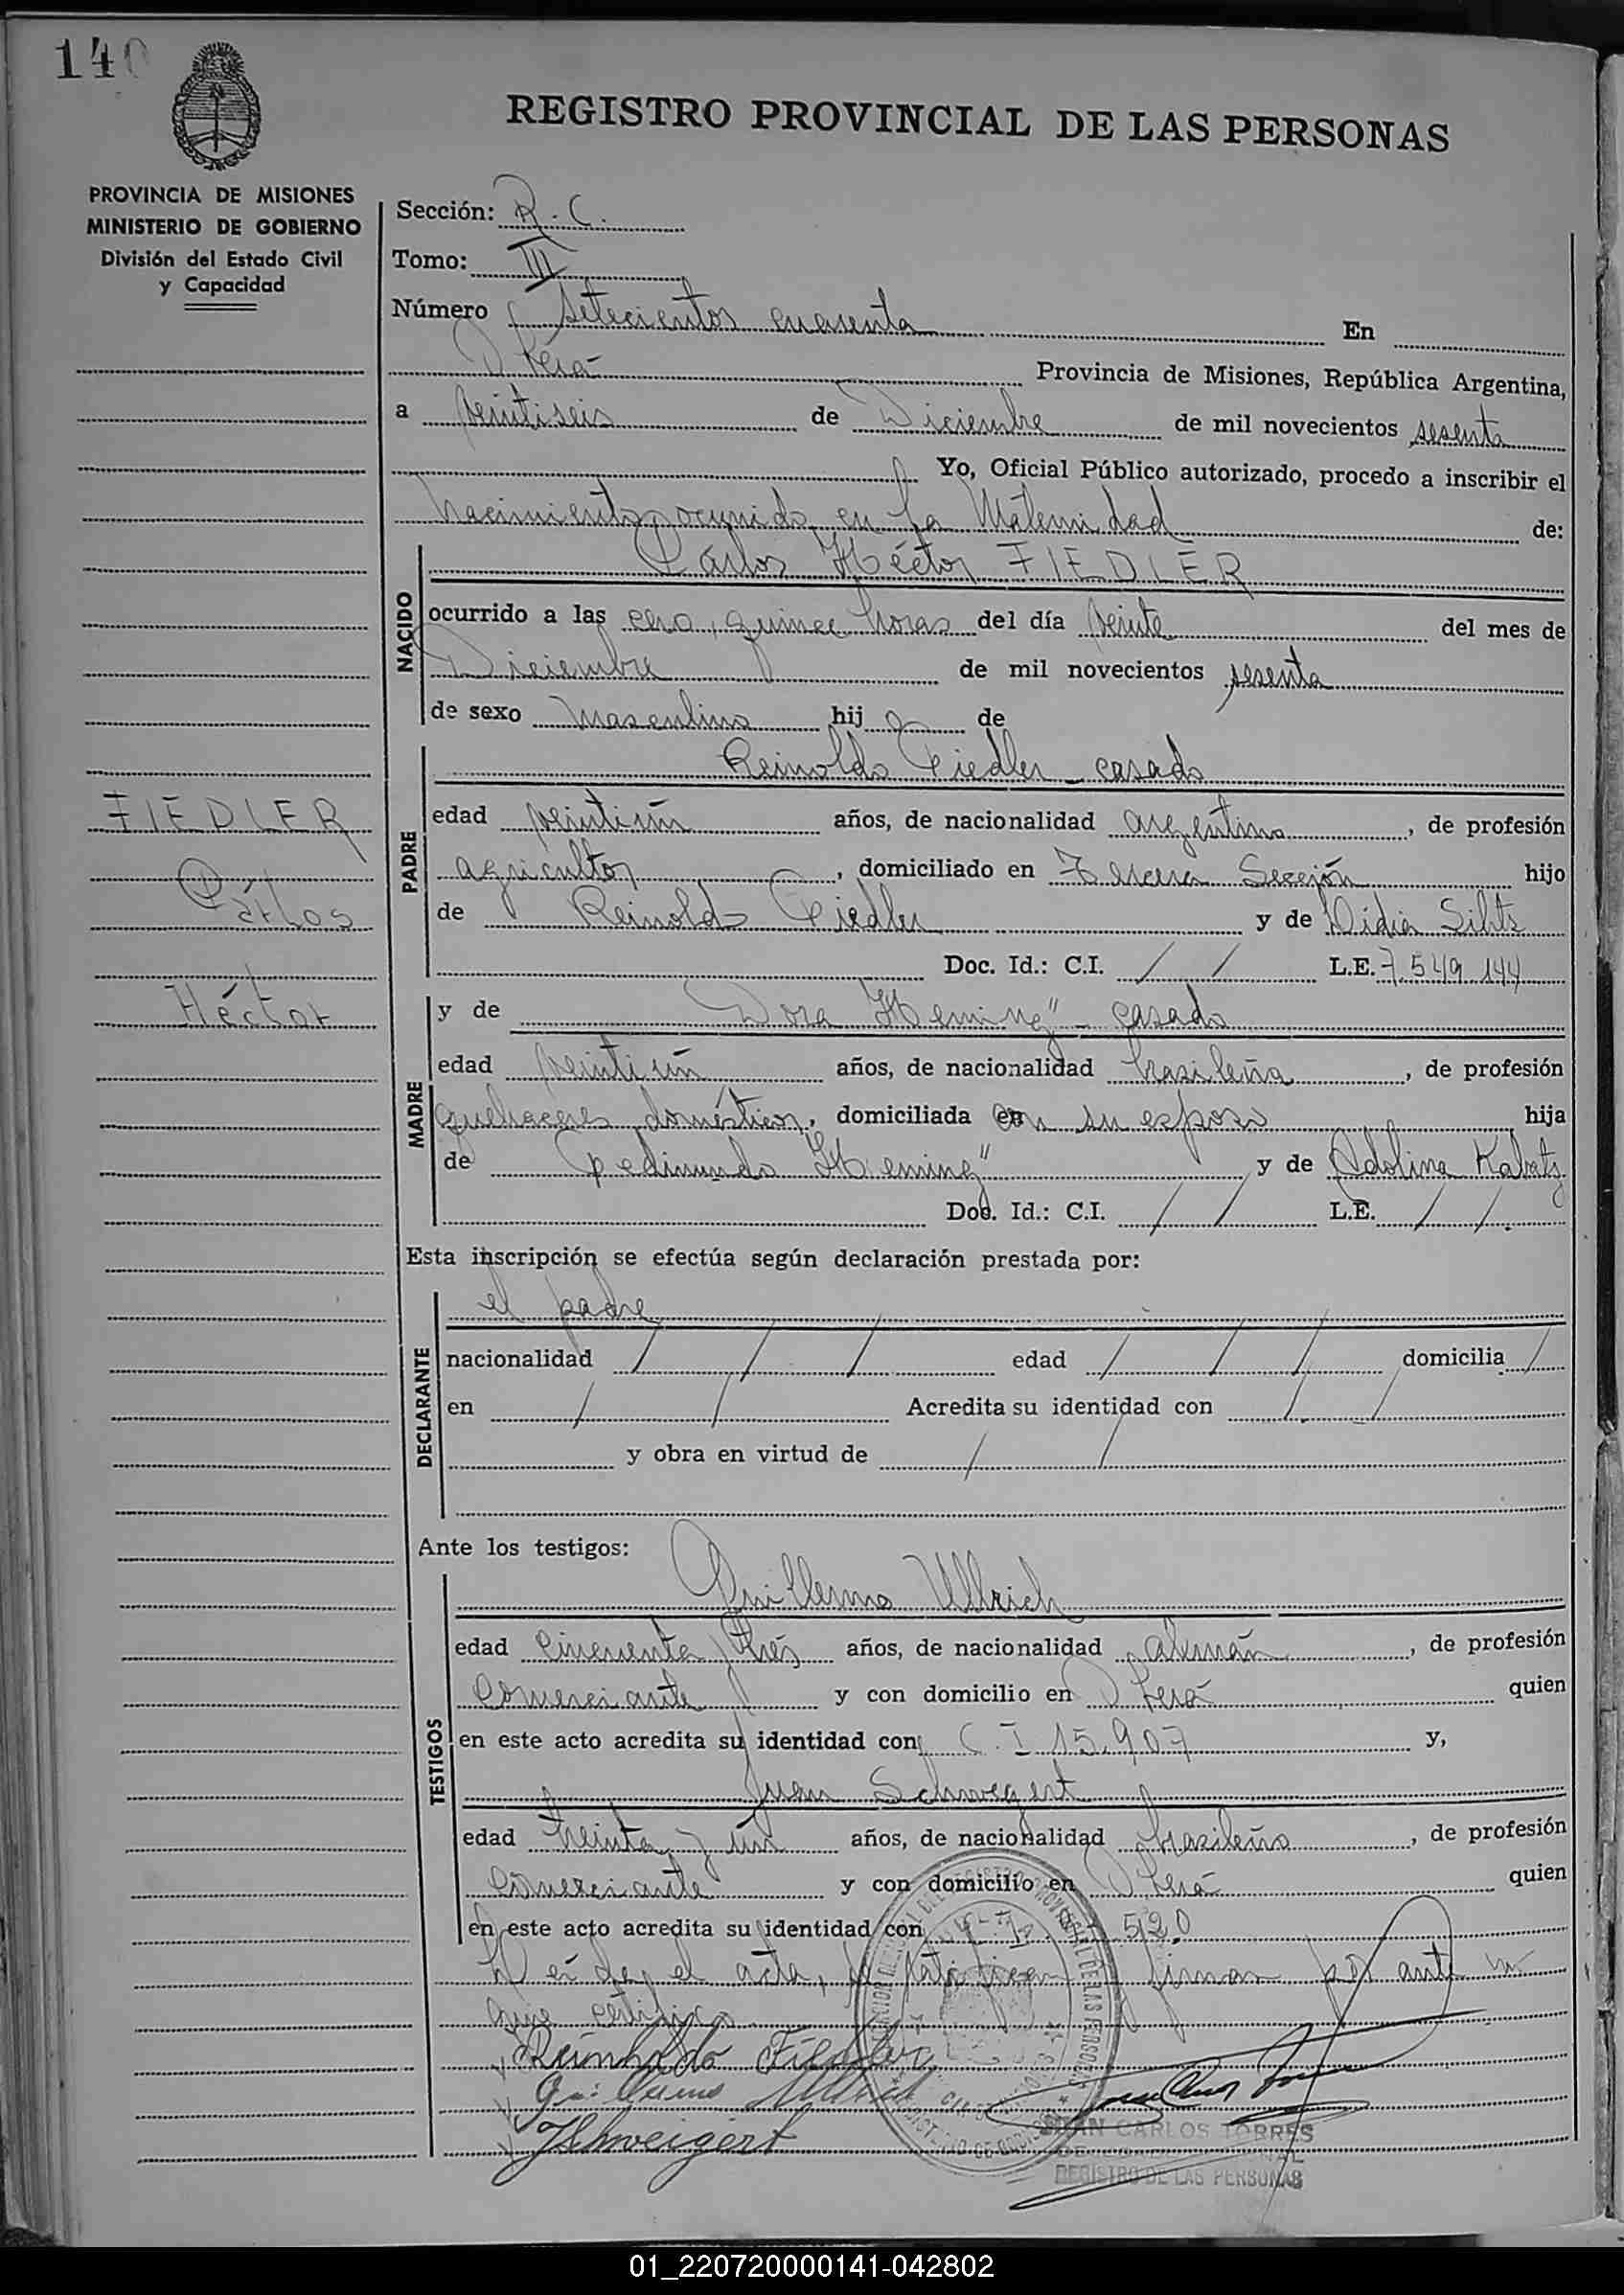 140
REGISTRO PROVINCIAL DE LAS PERSONAS
PROVINCIA DE MISIONES
MINISTERIO DE GOBIERNO
División del Estado Civil
y Capacidad
Sección: R. C.
Tomo: III
Número setecientos cuarenta En
Oberá Provincia de Misiones, República Argentina,
a veintiseis de Diciembre de mil novecientos sesenta
Yo, Oficial Público autorizado, procedo a inscribir el
nacimiento ocurrido en la Maternidad de:
NACIDO
Cárlos Héctor FIEDLER
ocurrido a las cero, quince horas del día veinte del mes de
Diciembre de mil novecientos sesenta
de sexo masculino hijo de
PADRE
Reinoldo Fiedler - casado
edad veintiún años, de nacionalidad argentino, de profesión
agricultor, domiciliado en Tercera Sección hijo
de Reinoldo Fiedler y de Lidia
Doc. Id.: C.I. / / L.E. 7.549.144
FIEDLER
Cárlos
Héctor
MADRE
y de Dora "Heming" - casada
edad veintiún años, de nacionalidad brasileña, de profesión
quehaceres domésticos, domiciliada con su esposo hija
de "Heming" y de Adolina
Doc. Id.: C.I. / / L.E. / /
Esta inscripción se efectúa según declaración prestada por:
DECLARANTE
el padre
nacionalidad / / / edad / / / domicilia /
en / / Acredita su identidad con / /
y obra en virtud de / /
Ante los testigos:
TESTIGOS
Guillermo Ullrich
edad cincuenta y trés años, de nacionalidad alemán, de profesión
comerciante y con domicilio en Oberá quien
en este acto acredita su identidad con C. I 15.907 y,
Juan Schwegert
edad treinta y un años, de nacionalidad brasileño, de profesión
comerciante y con domicilio en Oberá quien
en este acto acredita su identidad con 520
Leída el acta, se ratifican y firman por ante mi
que certifico
Reinholdo Fiedler
Guillermo Ullrich
JSchweigert
JUAN CARLOS TORRES
REGISTRO DE LAS PERSONAS
01_220720000141-042802